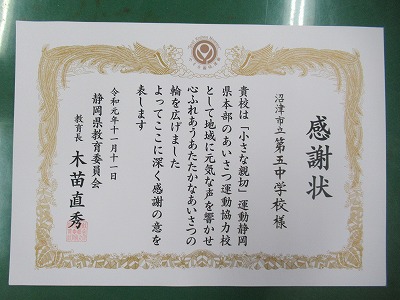 感謝状
沼津市立第五中学校様
貴校は「小さな親切」運動静岡
県本部のあいさつ運動協力校
として地域に元気な声を響かせ
心ふれあうあたたかなあいさつの
輪を広げました
よってここに深く感謝の意を
表します
令和元年十一月十一日
静岡県教育委員会
教育長 木苗直秀